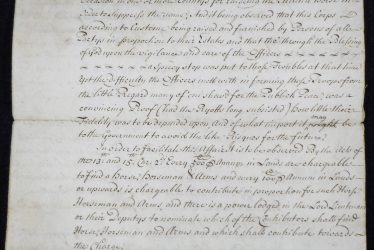 Occasion in the several Countys for raising the Militia Horse in
order to suppress the same; And it being observed that this Corps
according to Custome being raised and furnished by Persons of all
Partys in proportion to their Estates and that tho' through the Blessing
of God upon the vigilance and care of the Officers
a speedy stop was put to those Troubles at that time
yet the difficulty the Officers mett with in forming those Troops from
the little Regard many of em shew'd for the Publick Peace, was a
convincing Proof (had the Revolts long subsisted) how little their
Fidelity was to be depended upon and of what import it may be
to the Government to avoid the like Risques for the future;
In order to facilitate this Affair it is to be observed By the Acts of
the 13th and 15 Car: 2d. Every 500£ ₱ annum in Lands are chargeable
to find a Horse, Horseman & Arms and every 100£ ₱ Annum in Lands
or upwards is chargeable to contribute in proportion for such Horse
Horseman and Arms, and there is a power lodged in the Lord Lieutenant
or their Deputys to nominate which of the Contributors shall find
Horse, Horseman and Arms and which shall contribute towards
the Charge